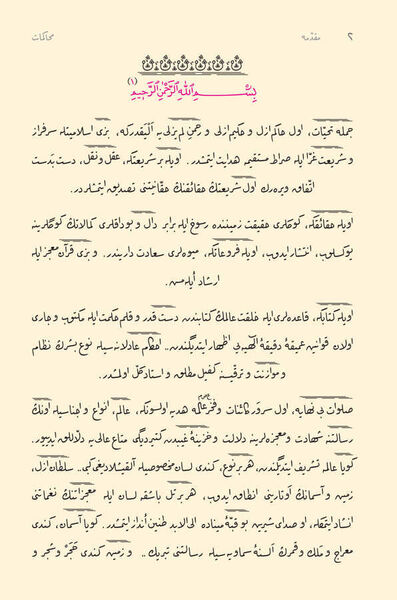 ٢ مقدّمه محاكمات
بِسْــمِ اللهِ الرَّحْمٰنِ الرَّحِيمِ (١)
جمله تحيّات، اول حاكم ازل و حكيم ازلى و رحمن لم يزلى يه اليقدركه، بزى اسلاميتله سرفراز
و شريعت غرّا ايله صراط مستقيمه هدايت ايتمشدر. اويله بر شريعتكه، عقل و نقل، دست بدست
اتّفاق ويره رك اول شريعتك حقائقنك حقانيتنى تصديق ايتمشلردر.
اويله حقائقكه، كوكلرى حقيقت زميننده رسوخ ايله برابر دال و بوداقلرى كمالاتك كوكلرينه
يوكسلوب، انتشار ايدوب، اويله فروعاتكه، ميوه لرى سعادت داريندر. و بزى قرآن معجز ايله
ارشاد ايله مش.
اويله كتابكه، قاعده لرى ايله خلقت عالمك كتابندن دست قدر و قلم حكمت ايله مكتوب و جارى
اولان قوانين عميقۀ دقيقۀ الٰهيه يى اظهار ايتديكندن.. احكام عادلانه سيله نوع بشرك نظام
و موازنت و ترقيسنه كفيل مطلق و استاد كلّ اولمشدر.
صلوات بى نهايه، اول سرور كائنات و فخر عالمه هديه اولسونكه، عالم، انواع و اجناسيله اونك
رسالتنه شهادت و معجزه لرينه دلالت و خزينۀ غيبدن كتيرديكى متاع عالى يه دلّاللق ايدييور.
كويا عالمه تشريف ايتديكندن، هر بر نوع، كندى لسان مخصوصيله آلقيشلاديغى كبى.. سلطان ازل،
زمين و آسمانك اوتارينى انطاق ايدوب، هر بر تل باشقه لسان ايله معجزاتنك نغماتنى
انشاد ايتمكله، او صداى شيرين بو قبّۀ مينا ده الى الابد طنين انداز ايتمشدر. كويا آسمان، كندى
معراج و ملك و قمرك السنۀ سماويه سيله رسالتنى تبريك.. و زمين كندى حجر و شجر و